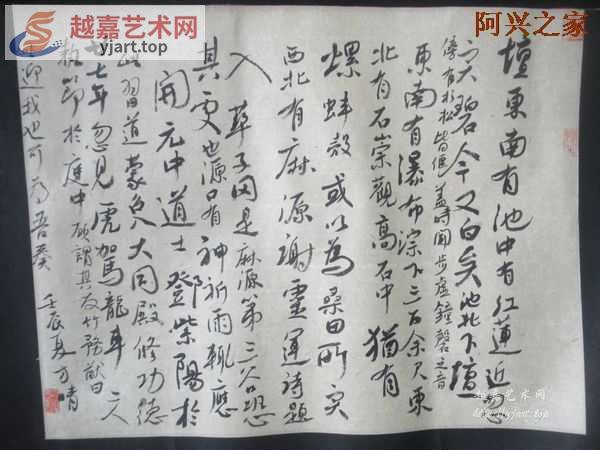 越嘉艺术网
yjart.top
阿兴之家
壇東南有池中有紅蓮近忽
变碧今又白矣池北下壇
傍有杉松皆偃蓋時聞步虛鐘磬之音
東南有瀑布淙下三百余尺東
北有石崇觀高石中猶有
螺蚌殼或以為桑田所变
西北有麻源謝靈運詩題
入華子岡是麻源第三谷恐
其处也源口有神祈雨輒應
開元中道士鄧紫陽於
此習道蒙召入大同殿修功德
廿七年忽見虎駕龍車二人
執節於庭中顧謂其友竹務猷曰
迎我也可為吾奏 壬辰夏
越嘉艺术网
www.yjart.top